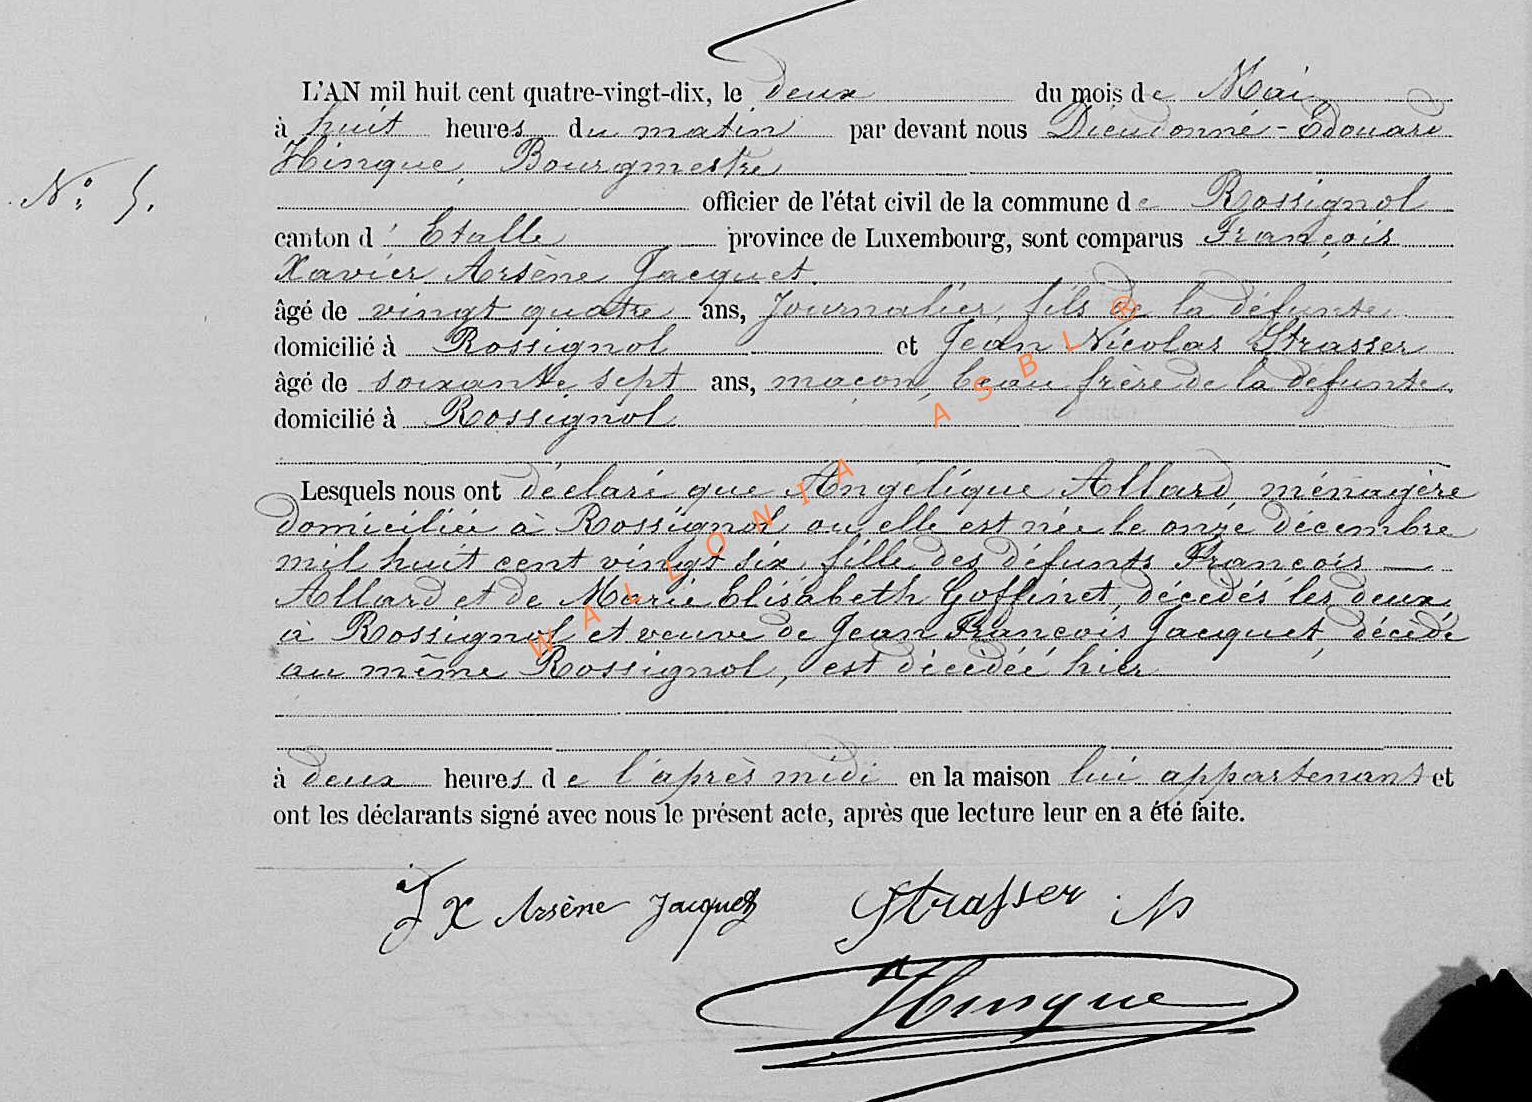 L'AN mil huit cent quatre-vingt-dix, le deux du mois de Mai
à huit heures du matin par devant nous Dieudonné-Edouard
Hinque, Bourgmestre
N° 5.
officier de l'état civil de la commune de Rossignol
canton d'Etalle province de Luxembourg, sont comparus François
Xavier Arsène Jacquet
âgé de vingt quatre ans, Journalier, fils de la défunte
domicilié à Rossignol et Jean Nicolas Strasser
âgé de soixante sept ans, maçon, beau frère de la défunte
domicilié à Rossignol
Lesquels nous ont déclaré que Angélique Allard ménagère
domiciliée à Rossignol ou elle est née le onze décembre
mil huit cent vingt six, fille des défunts François —
Allard et de Marie Elisabeth Goffinet, décédés les deux
à Rossignol et veuve de Jean François Jacquet, décédé
au même Rossignol, est décédée hier
à deux heures de l'après midi en la maison lui appartenant et
ont les déclarants signé avec nous le présent acte, après que lecture leur en a été faite.
F X Arsène Jacquet Strasser N
Hinque
WALLONIA ASBL ®